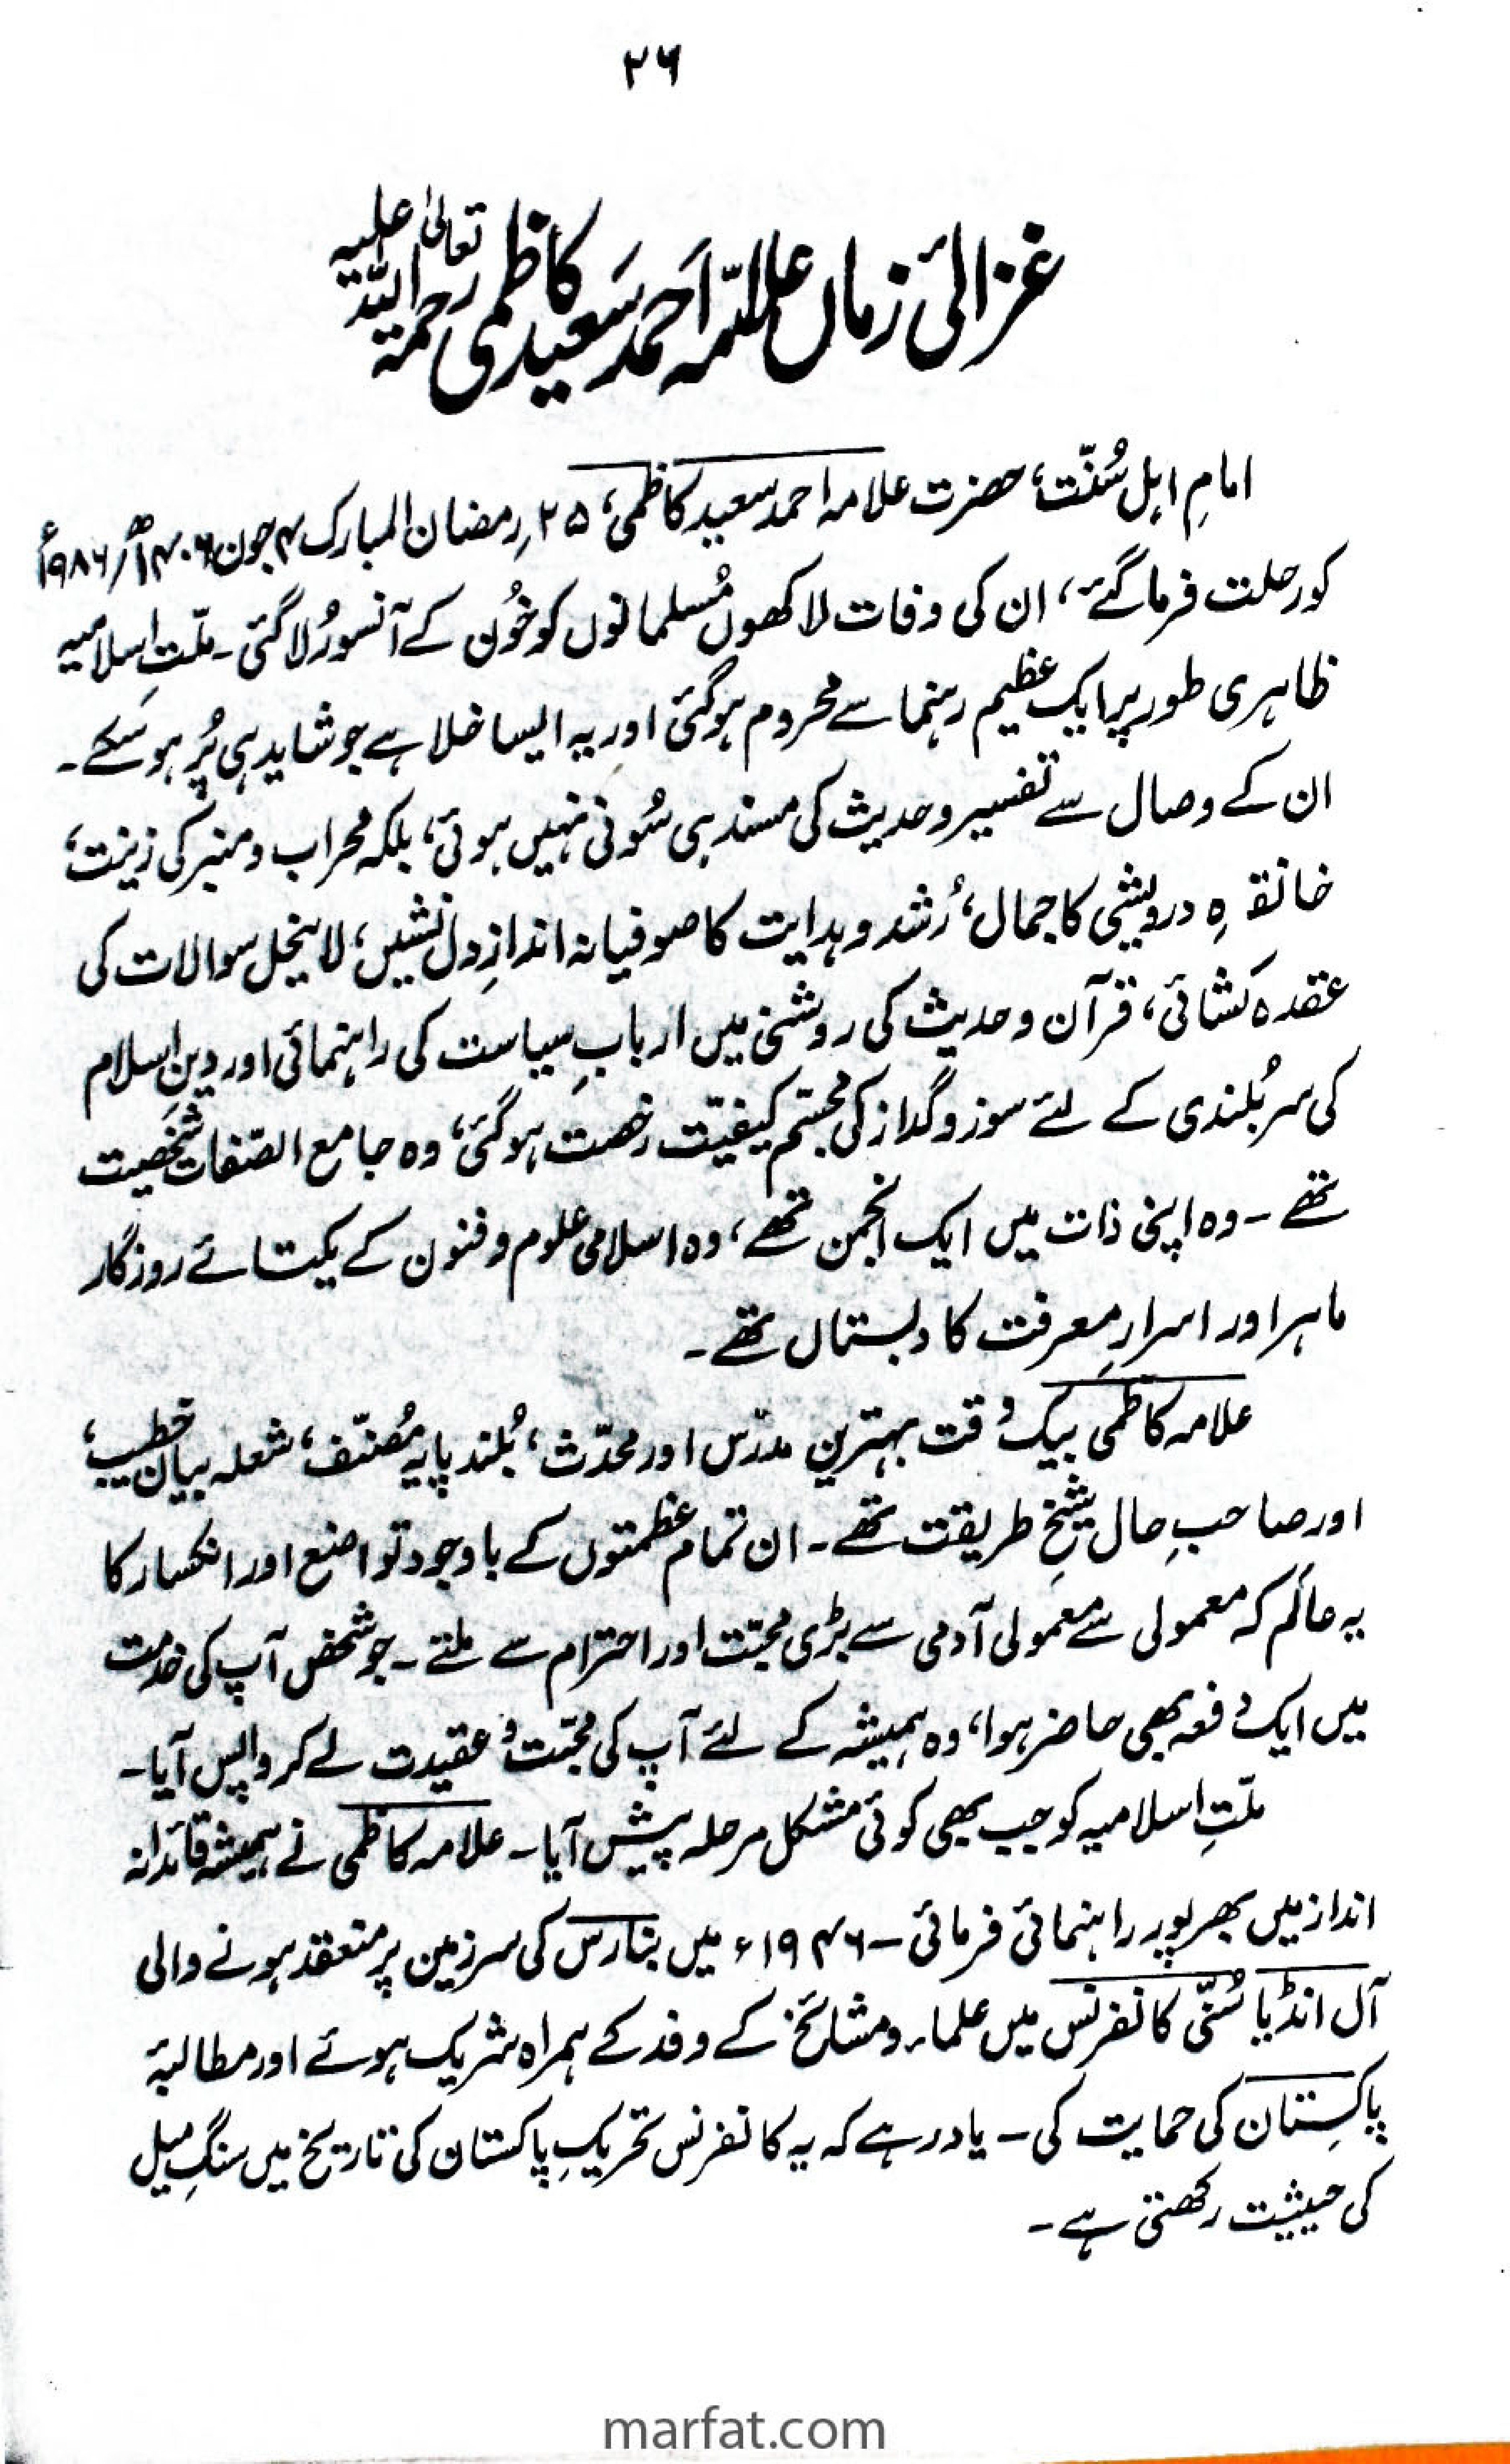 ۲۶
غزالیٔ زماں علامہ احمد سعید کاظمی رحمۃ اللہ تعالیٰ علیہ
امامِ اہلِ سُنّت، حضرت علامہ احمد سعید کاظمی، ۲۵ رمضان المبارک ۴ جون ۱۴۰۶ھ/۱۹۸۶ء
کو رحلت فرما گئے، ان کی وفات لاکھوں مُسلمانوں کو خُون کے آنسو رُلا گئی ۔ ملّتِ اسلامیہ
ظاہری طور پر ایک عظیم رہنما سے محروم ہو گئی اور یہ ایسا خلا ہے جو شاید ہی پُر ہو سکے ۔
ان کے وصال سے تفسیر و حدیث کی مسند ہی سُونی نہیں ہوئی، بلکہ محراب و منبر کی زینت،
خانقہِ درویشی کا جمال، رُشد و ہدایت کا صوفیانہ اندازِ دل نشیں، لاینحل سوالات کی
عقدہ کشائی، قرآن و حدیث کی روشنی میں اربابِ سیاست کی راہنمائی اور دینِ اسلام
کی سربُلندی کے لئے سوز و گداز کی مجسّم کیفیّت رخصت ہو گئی، وہ جامع الصّفات شخصیت
تھے ۔ وہ اپنی ذات میں ایک انجمن تھے، وہ اسلامی علوم و فنون کے یکتائے روزگار
ماہر اور اسرارِ معرفت کا دبستاں تھے ۔
علامہ کاظمی بیک وقت بہترین مدرّس اور محدّث، بُلند پایہ مُصنّف، شعلہ بیان خطیب،
اور صاحبِ حال شیخِ طریقت تھے ۔ ان تمام عظمتوں کے باوجود تواضع اور انکسار کا
یہ عالَم کہ معمولی سے معمولی آدمی سے بڑی محبّت اور احترام سے ملتے ۔ جو شخص آپ کی خدمت
میں ایک دفعہ بھی حاضر ہوا، وہ ہمیشہ کے لئے آپ کی محبّت و عقیدت لے کر واپس آیا ۔
ملّتِ اسلامیہ کو جب بھی کوئی مشکل مرحلہ پیش آیا ۔ علامہ کاظمی نے ہمیشہ قائدانہ
انداز میں بھرپور راہنمائی فرمائی ۔ ۱۹۴۶ء میں بنارس کی سرزمین پر منعقد ہونے والی
آل انڈیا سُنّی کانفرنس میں علماء و مشائخ کے وفد کے ہمراہ شریک ہوئے اور مطالبۂ
پاکستان کی حمایت کی ۔ یاد رہے کہ یہ کانفرنس تحریکِ پاکستان کی تاریخ میں سنگِ میل
کی حیثیت رکھتی ہے ۔
marfat.com